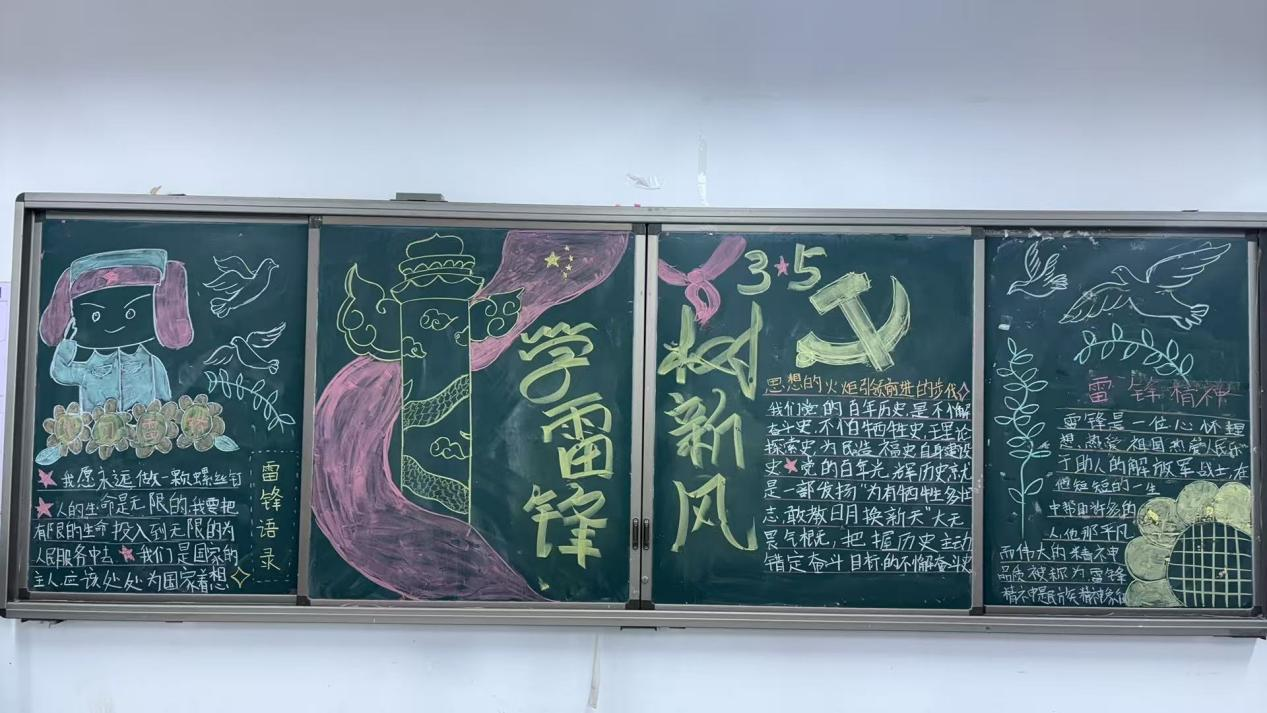 我愿永远做一颗螺丝钉
人的生命是无限的,我要把
有限的生命投入到无限的为
人民服务中去 我们是国家的
主人应该处处为国家着想
雷锋语录
学雷锋
3 5
树新风
思想的火炬引领前进的步伐
我们党的百年历史是不懈
奋斗史,不怕牺牲史,理论
探索史,为民造福史,自身建设
史 党的百年光辉历史就
是一部发扬“为有牺牲多壮
志,敢教日月换新天”大无
畏气概,把握历史主动
锚定奋斗目标的不懈奋斗史
雷锋精神
雷锋是一位心怀理
想,热爱祖国热爱人民乐
于助人的解放军战士,在
他短短的一生
中帮助许多的
人他那平凡
而伟大的精神
品质被称为雷锋